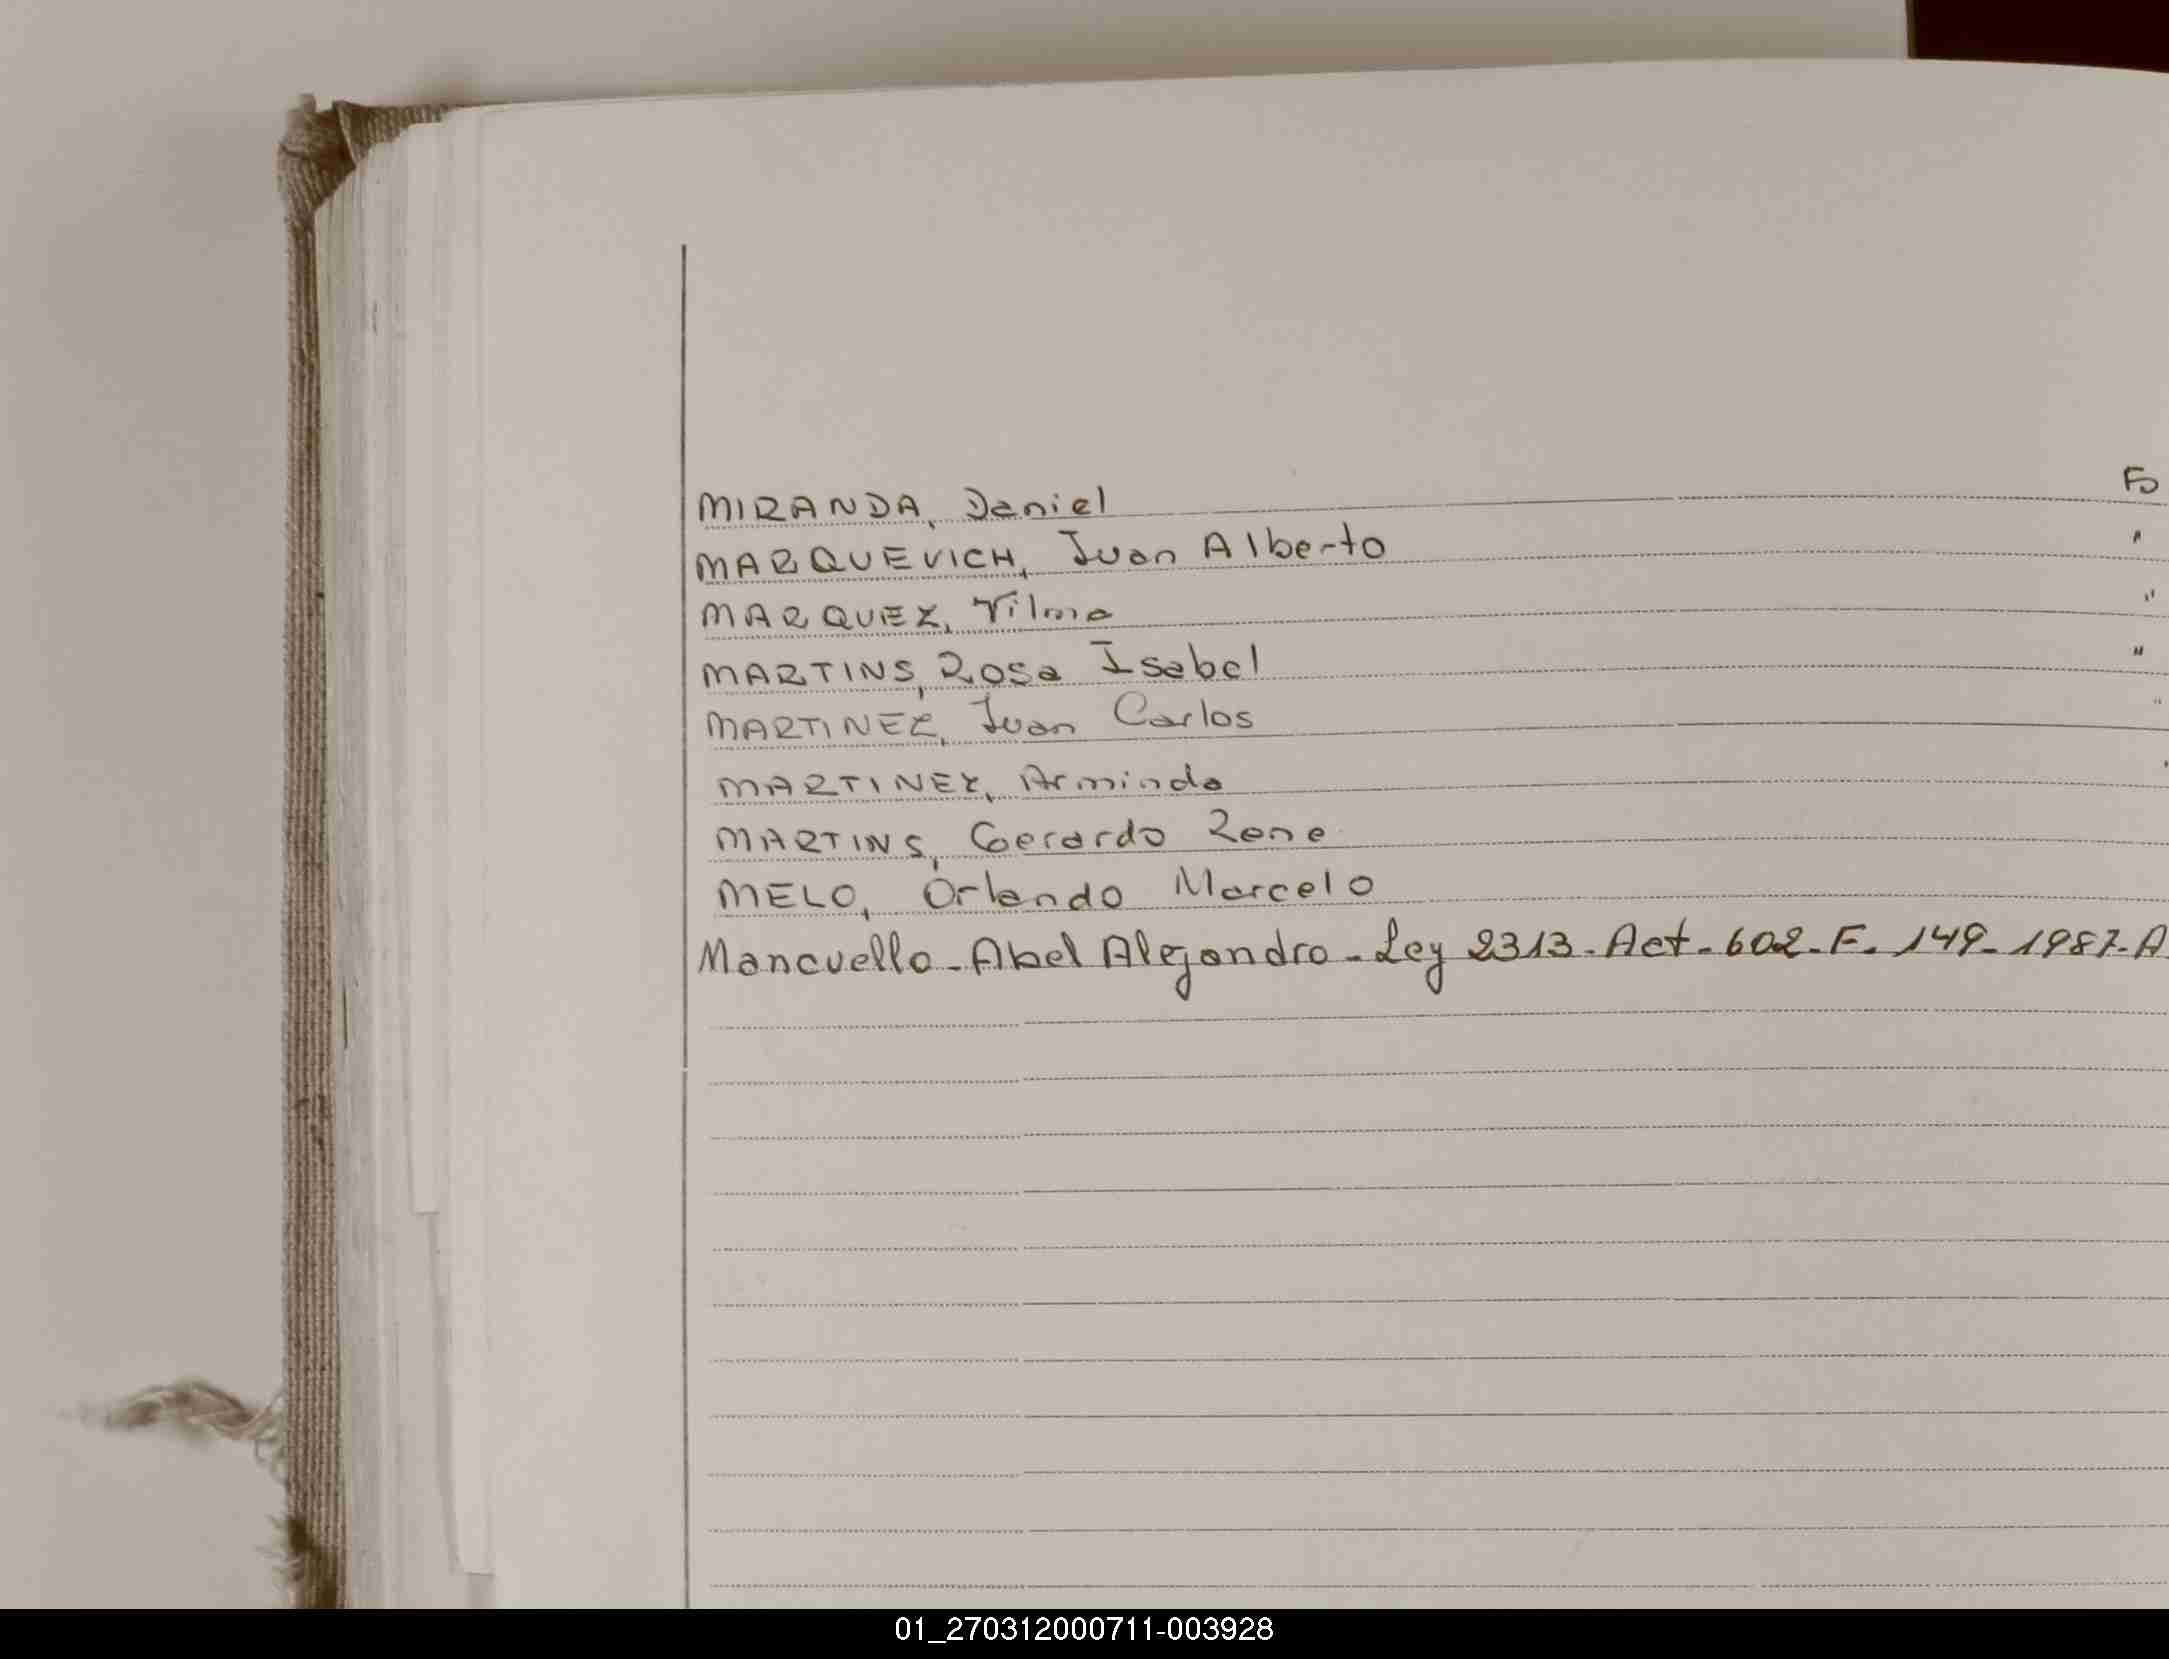 MIRANDA, Daniel Fo
MARQUEVICH, Juan Alberto "
MARQUEZ, Vilma "
MARTINS, Rosa Isabel "
MARTINEZ, Juan Carlos "
MARTINEZ, Arminda
MARTINS, Gerardo Rene
MELO, Orlando Marcelo
Mancuello - Abel Alejandro - Ley 2313 - Act - 602 - F. 149 - 1987 - A
01_270312000711-003928